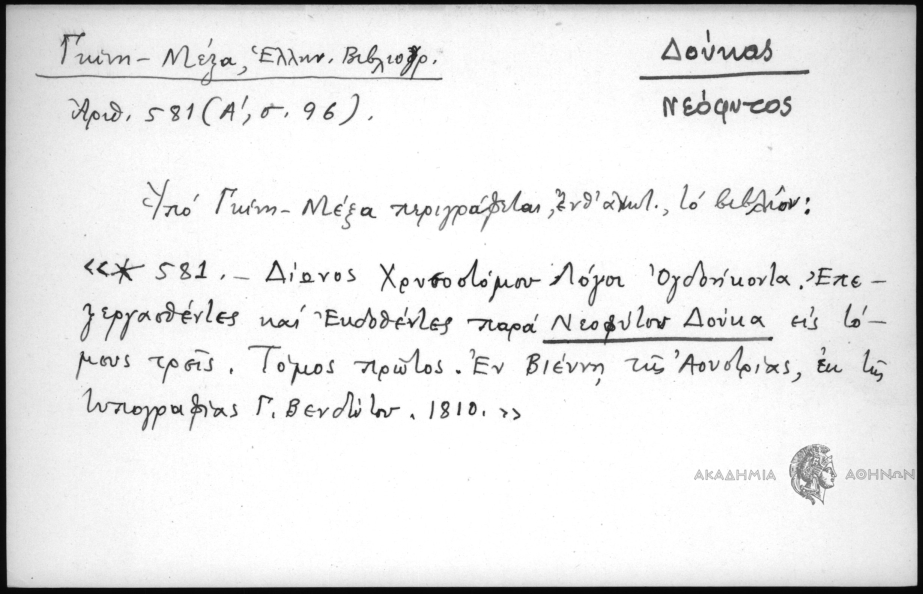 Γκίνη - Μέξα, Ἑλλην. Βιβλιογρ.
Δούκας
Ἀριθ. 581 (Α', σ. 96).
Νεόφυτος
Ὑπό Γκίνη - Μέξα περιγράφεται, ἔνθ' ἀνωτ., τό βιβλίον:
«* 581. - Δίωνος Χρυσοστόμου Λόγοι Ὀγδοήκοντα. Ἐπε-
ξεργασθέντες καί Ἐκδοθέντες παρά Νεοφύτου Δούκα εἰς τό-
μους τρεῖς. Τόμος πρῶτος. Ἐν Βιέννῃ τῆς Ἀουστρίας, ἐκ τῆς
τυπογραφίας Γ. Βενδότου. 1810.»
ΑΚΑΔΗΜΙΑ ΑΘΗΝΩΝ